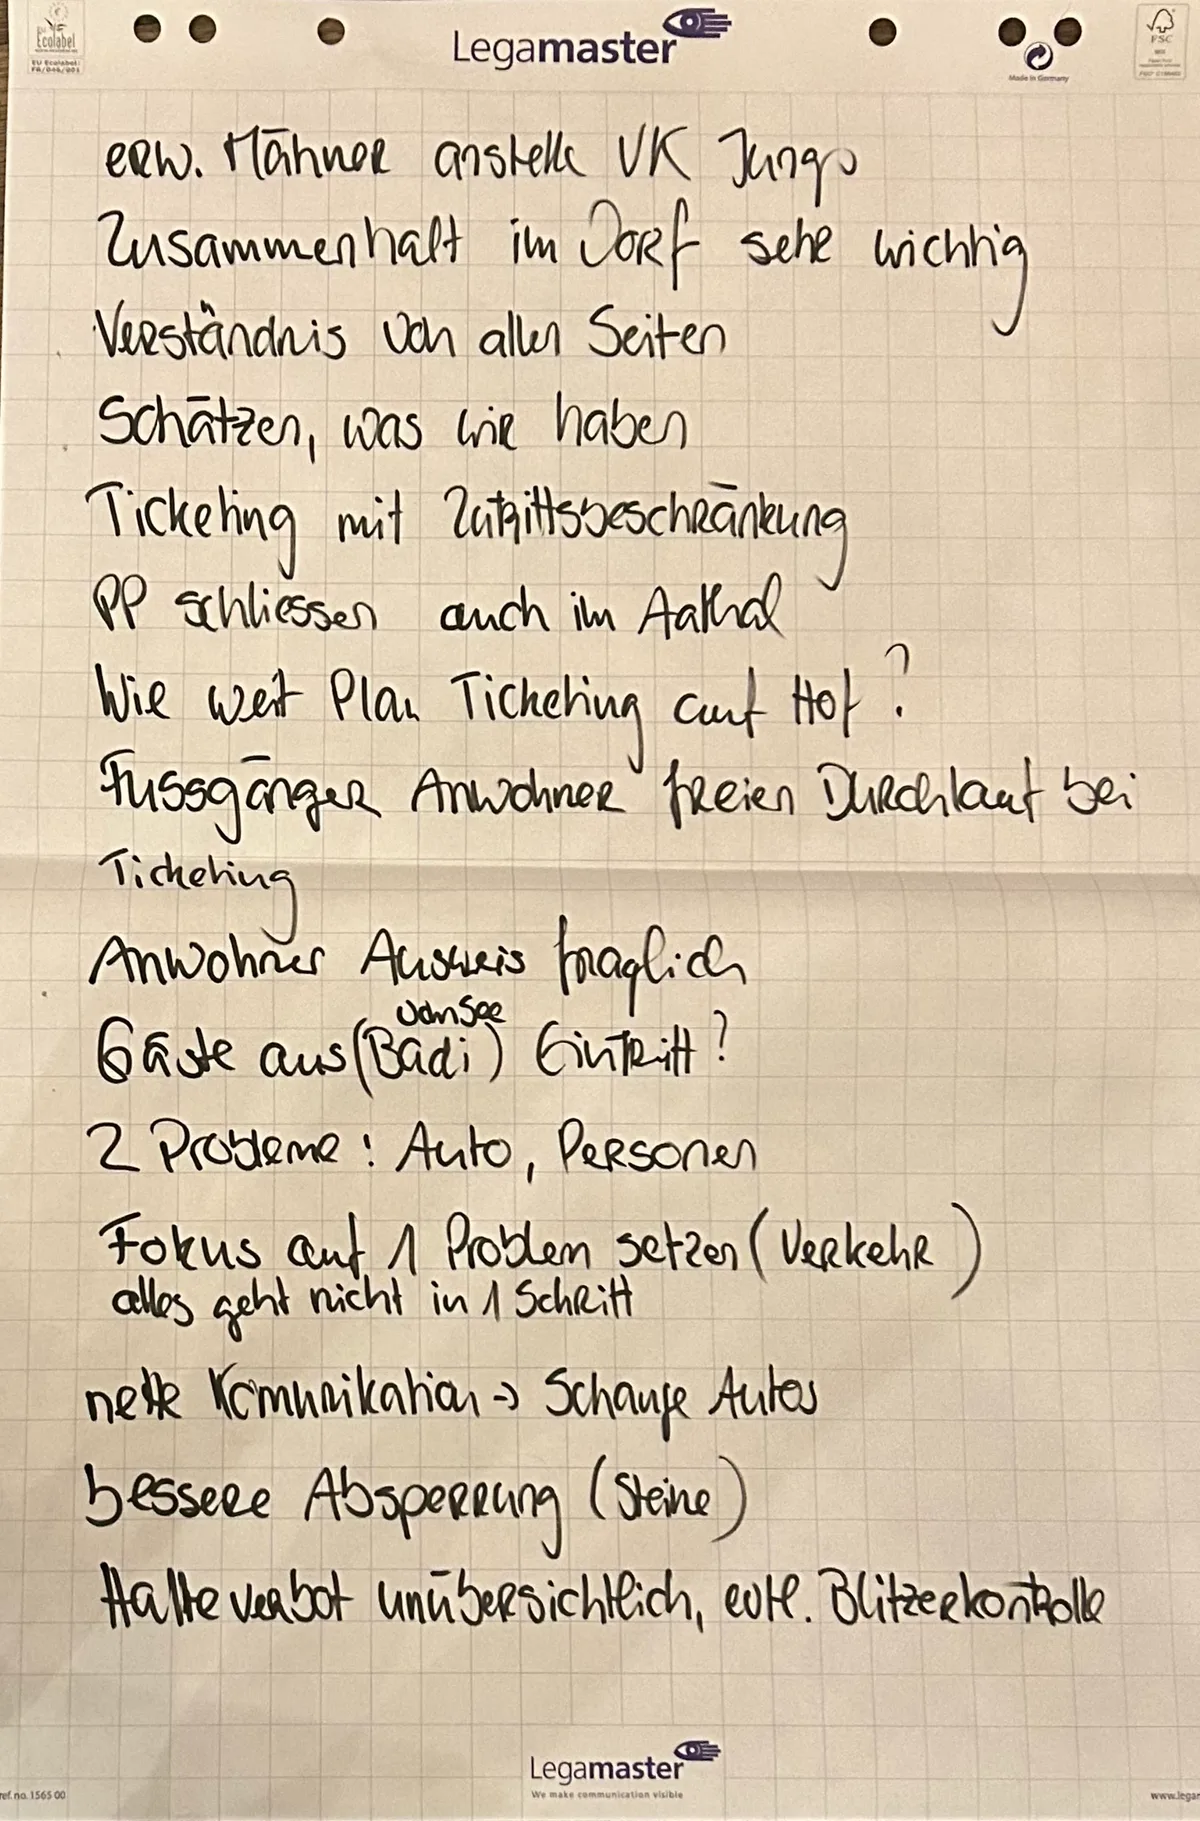 EU Ecolabel
EU Ecolabel:
FR/044/001
Legamaster
Made in Germany
FSC
erw. Männer anstelle VK Jungs
Zusammenhalt im Dorf sehr wichtig
Verständnis von allen Seiten
Schätzen, was wir haben
Ticketing mit Zutrittsbeschränkung
PP schliessen auch im Aathal
Wie weit Plan Ticketing auf Hof?
Fussgänger Anwohner freien Durchlauf bei
Ticketing
Anwohner Ausweis fraglich
vom See
Gäste aus (Badi) Eintritt?
2 Probleme: Auto, Personen
Fokus auf 1 Problem setzen (Verkehr)
alles geht nicht in 1 Schritt
nette Komunikation → Schange Autos
bessere Absperrung (Steine)
Halteverbot unübersichtlich, evtl. Blitzerkontrolle
Legamaster
We make communication visible
ref. no. 1565 00
www.legam